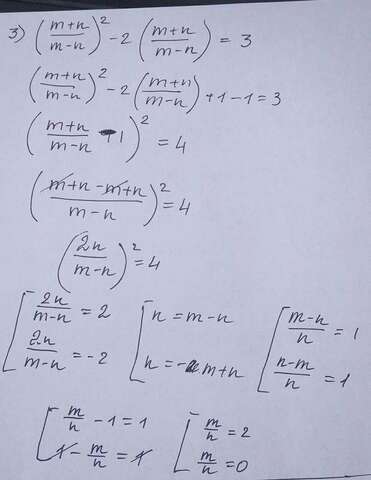 3) ((m+n)/(m-n))² - 2 ((m+n)/(m-n)) = 3
((m+n)/(m-n))² - 2 ((m+n)/(m-n)) + 1 - 1 = 3
((m+n)/(m-n) - 1)² = 4
((m+n - m+n)/(m-n))² = 4
(2n/(m-n))² = 4
[ 2n/(m-n) = 2 [ n = m-n [ (m-n)/n = 1
2n/(m-n) = -2 n = -m+n (n-m)/n = 1
[ m/n - 1 = 1 [ m/n = 2
1 - m/n = 1 m/n = 0